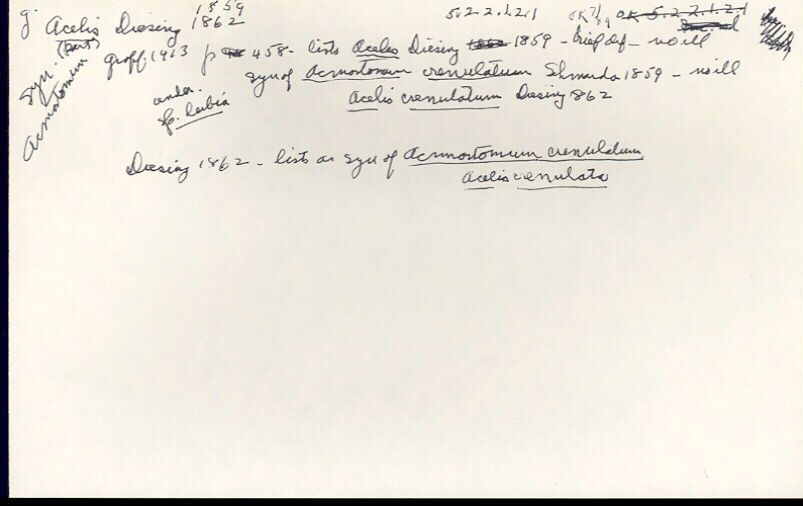 g. Acelis Diesing 1859 1862
5.2.2.1.2.1 OK 7/89 OK 5.2.2.1.2.1
syn. (part) Acmostomum
Graff 1913 p 458 - lists Acelis Diesing 1862 1859 - brief def - no ill
syn of Acmostomum crenulatum Schmarda 1859 - no ill
under
Acelis crenulatum Diesing 1862
Diesing 1862 - lists as syn of Acmostomum crenulatum
Acelis crenulata